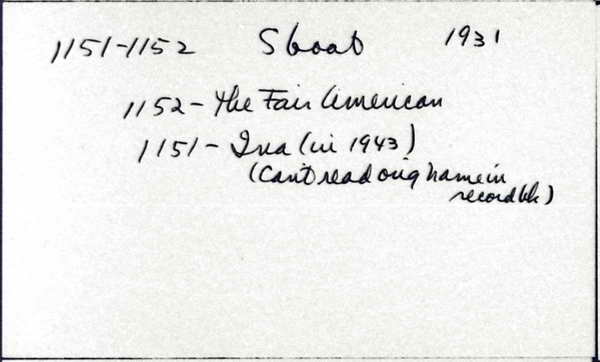 1151-1152 S boat 1931
1152 - The Fair American
1151 - Iva (in 1943)
(Can't read orig name in
record bk)